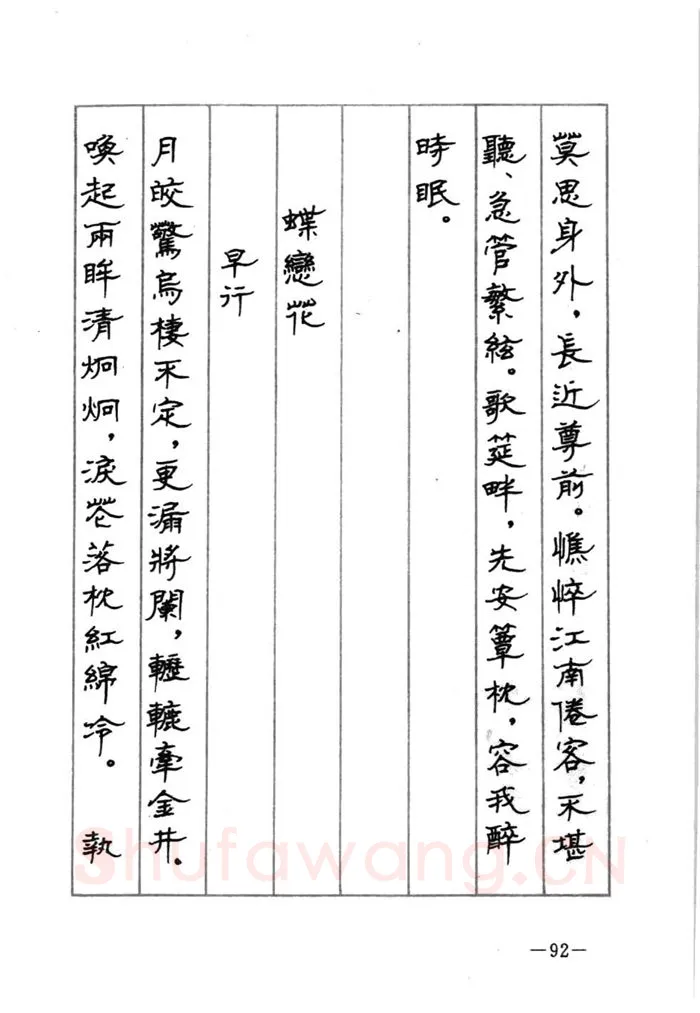 莫思身外，長近尊前。憔悴江南倦客，不堪
聽、急管繁絃。歌筵畔，先安簟枕，容我醉
時眠。
蝶戀花
早行
月皎驚烏棲不定，更漏將闌，轣轆牽金井。
喚起兩眸清炯炯，淚花落枕紅綿冷。 執
Shufawang.CN
—92—